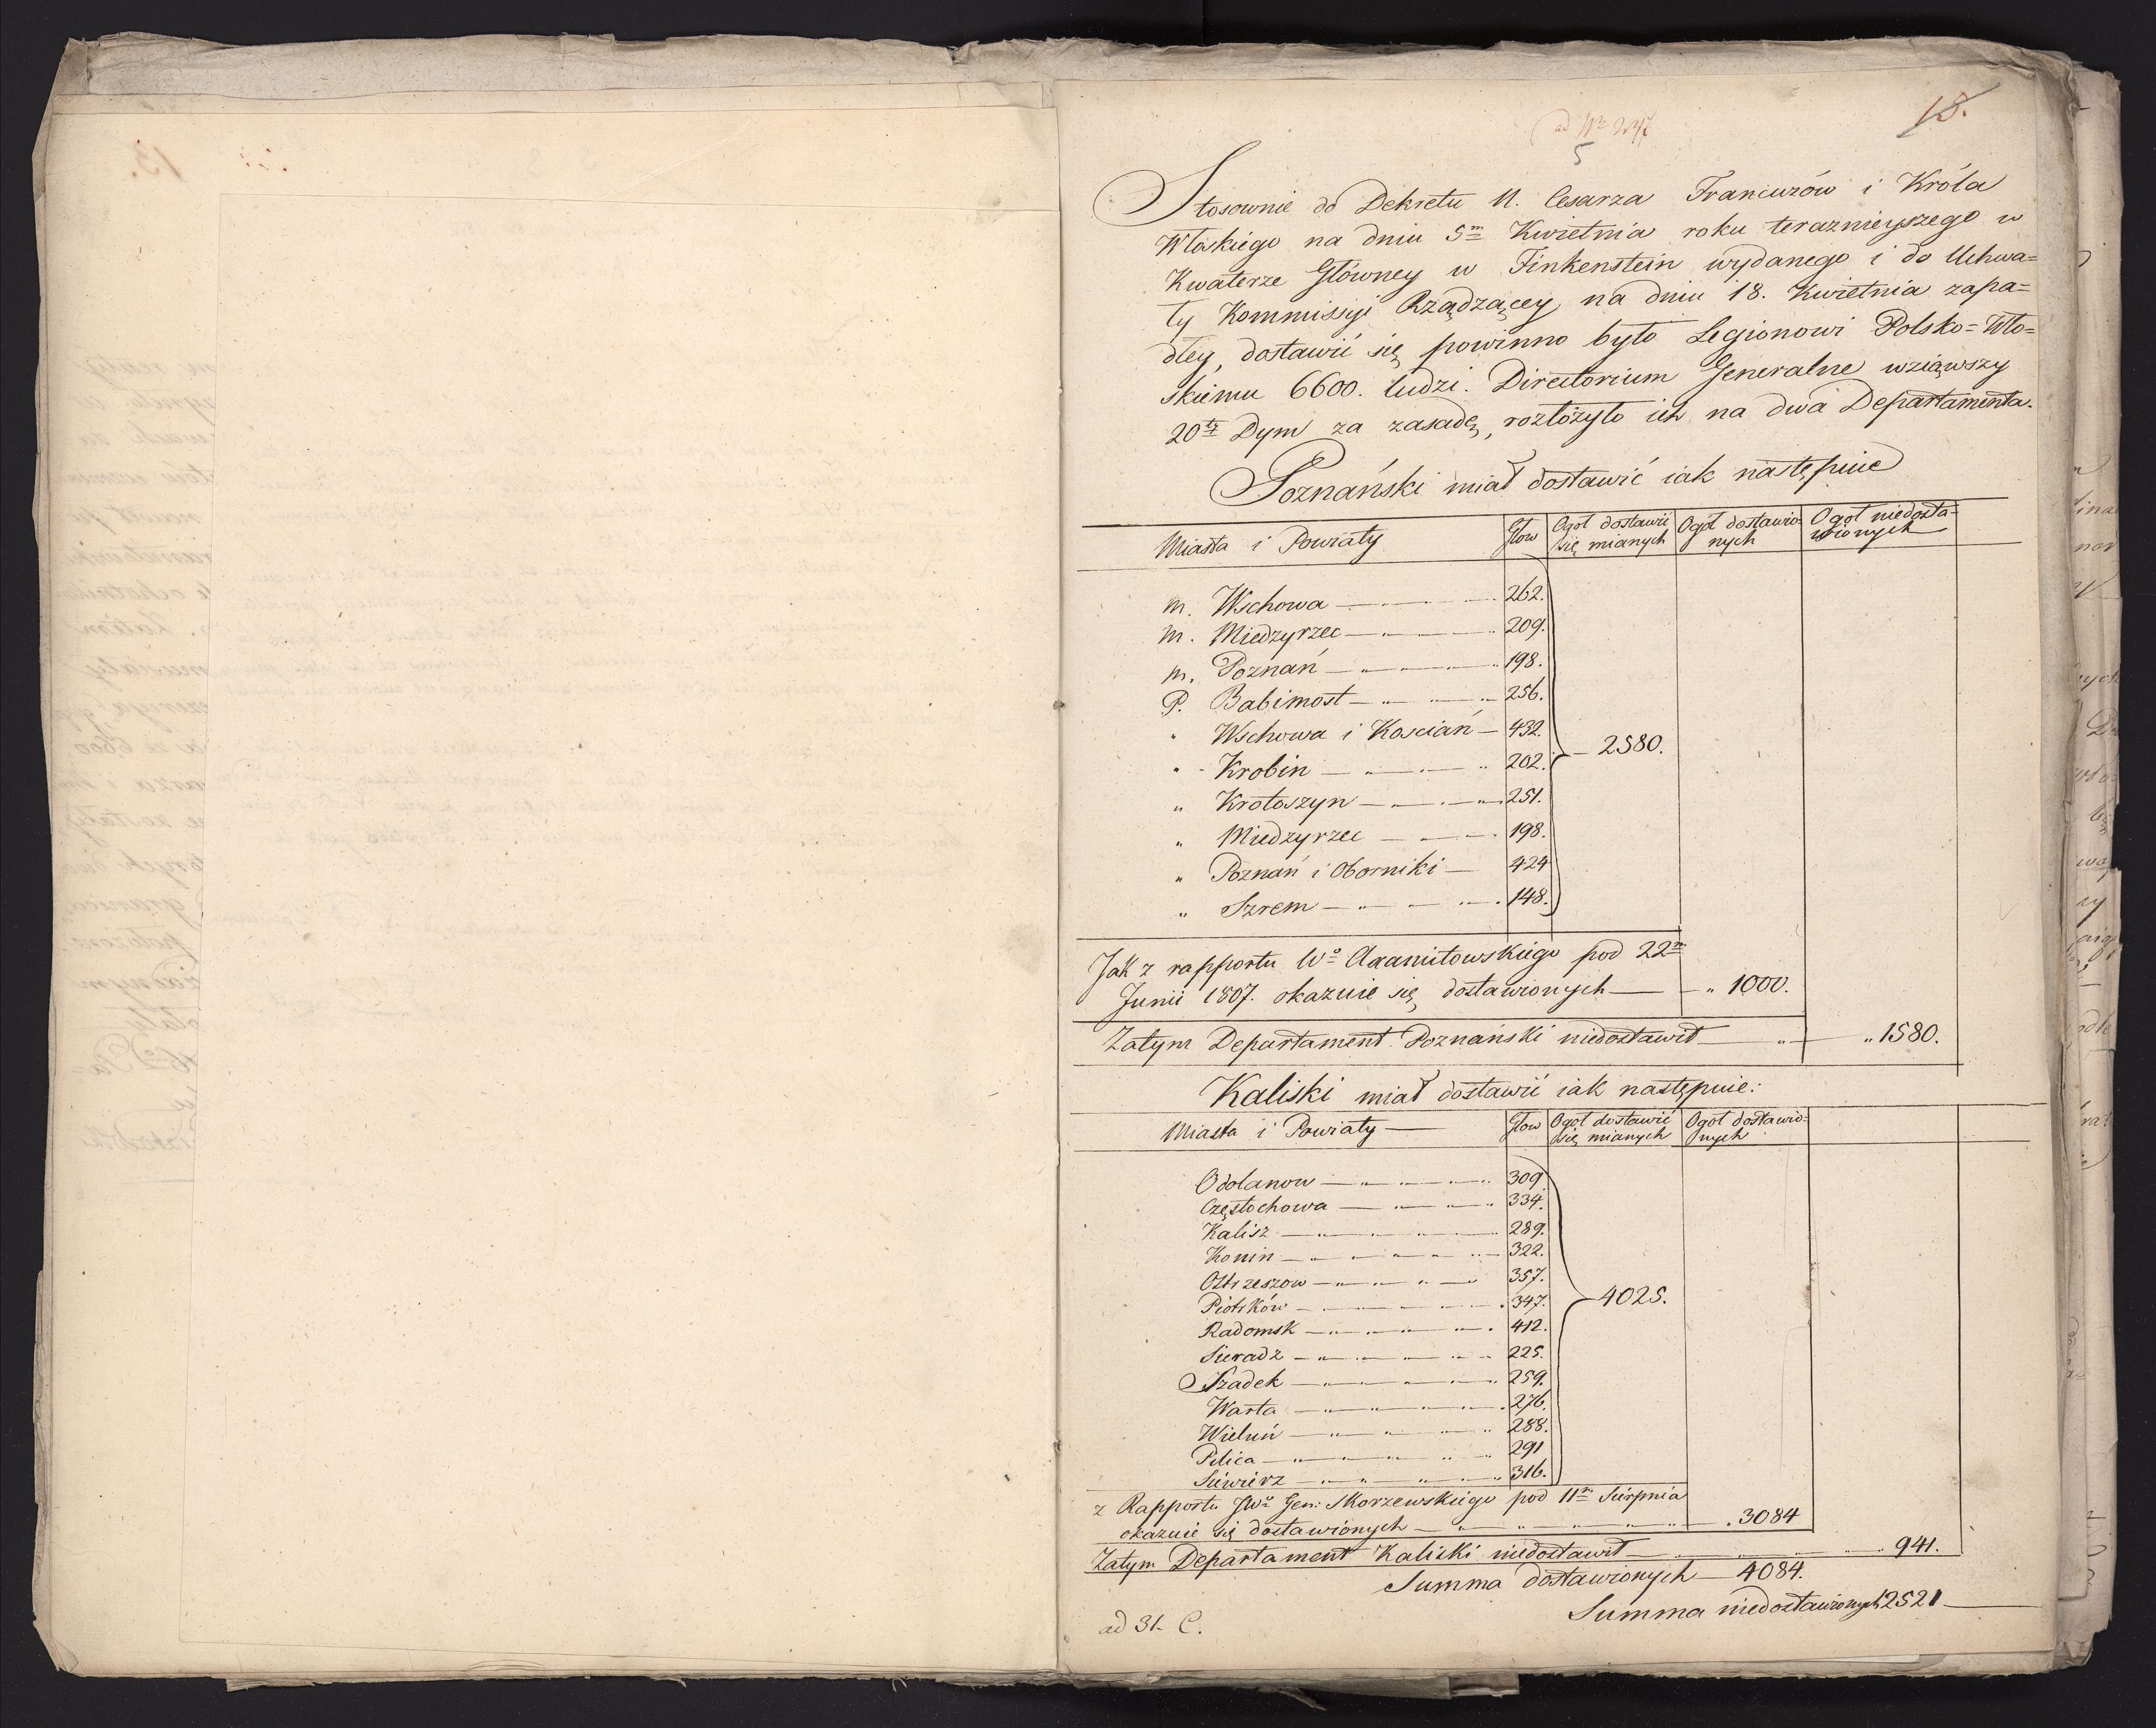 13.
ad Nr 247
5
Stosownie do Dekretu N. Cesarza Francuzów i Króla
Włoskiego na dniu 5m Kwietnia roku teraznieyszego w
Kwaterze Główney w Finkenstein wydanego i do Uchwa=
ły Kommissyi Rządzącey na dniu 18. Kwietnia zapa=
dłey, dostawić się powinno było Legionowi Polsko=Wło=
skiemu 6600. ludzi. Directorium Generalne wziąwszy
20ty Dym za zasadę, rozłożyło ich na dwa Departamenta.
Poznański miał dostawić iak następuie
Miasta i Powiaty Głow Ogół dostawić się mianych Ogół dostawio=nych Ogół niedosta=wionych
m. Wschowa 262.
m. Miedzyrzec 209.
m. Poznań 198.
P. Babimost 256.
" Wschowa i Kościań 432.
" Krobin 202. 2580.
" Krotoszyn 251.
" Miedzyrzec 198.
" Poznań i Oborniki 424
" Szrem 148.
Jak z rapportu Wo Axamitowskiego pod 22m
Junii 1807. okazuie się dostawionych 1000.
Zatym Departament Poznański niedostawił 1580.
Kaliski miał dostawić iak następuie:
Miasta i Powiaty Głow Ogół dostawić się mianych Ogół dostawio=nych
Odolanow 309.
Częstochowa 334.
Kalisz 289.
Konin 322.
Ostrzeszow 357.
Piotrków 347. 4025.
Radomsk 412.
Sieradz 225.
Szadek 259.
Warta 276.
Wieluń 288.
Pilica 291
Siewierz 316.
z Rapportu JWo Gen: Skorzewskiego pod 11m Sierpnia
okazuie się dostawionych 3084
Zatym Departament Kaliski niedostawił 941.
Summa dostawionych 4084.
Summa niedostawionych 2521
ad 31. C.